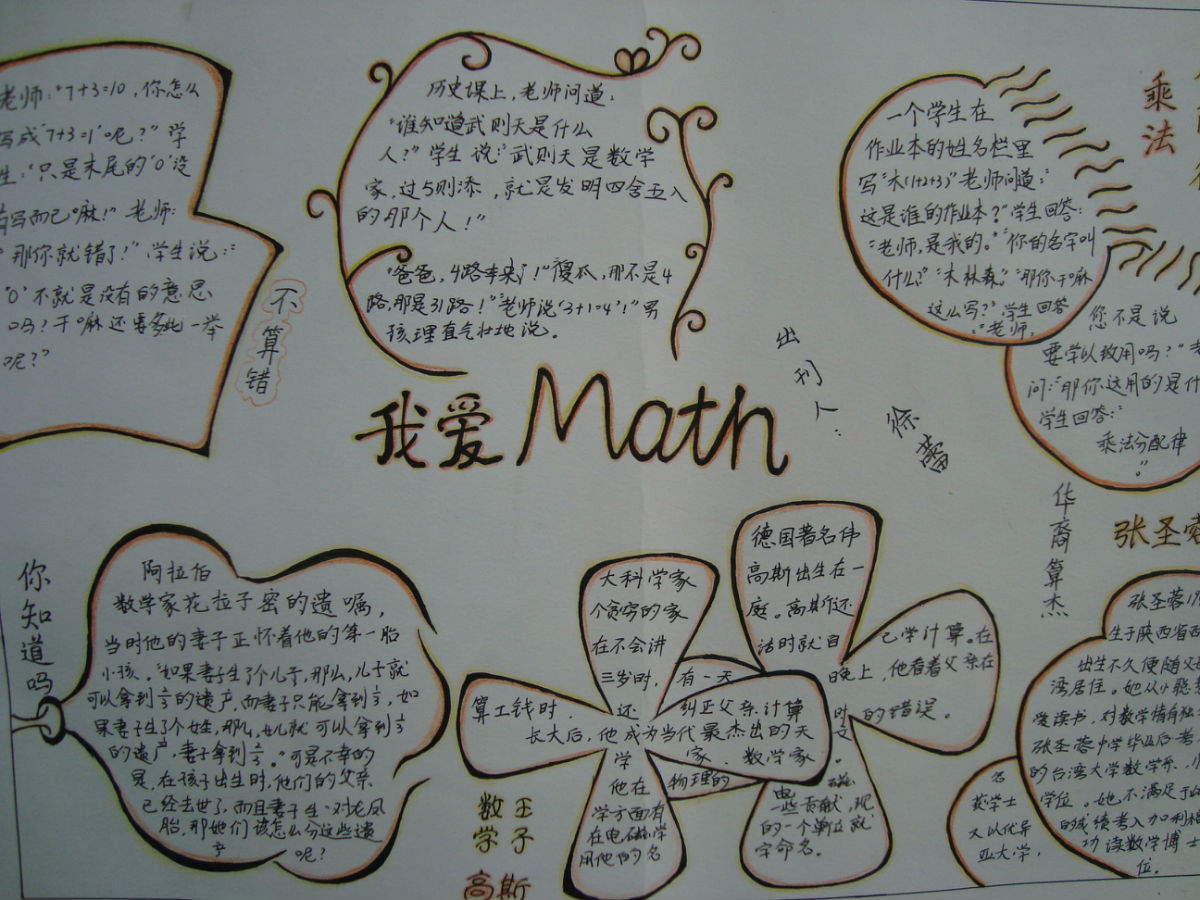 老师:"7+3=10,你怎么
写成"7+3=1"呢?"学
生:"只是末尾的'0'没
有写而已嘛!"老师:
"那你就错了!"学生说:"
'0'不就是没有的意思
吗?干嘛还要多此一举
呢?"
不算错
历史课上,老师问道:
"谁知道武则天是什么
人?"学生说:"武则天是数学
家,过5则添,就是发明四舍五入
的那个人!"
"爸爸,4路车来了!"傻瓜,那不是4
路,那是31路!"老师说'3+1=4'!"男
孩理直气壮地说。
乘法
一个学生在
作业本的姓名栏里
写"木(1+2+3)"老师问道:"
这是谁的作业本?"学生回答:
"老师,是我的。"你的名字叫
什么?"木林森。""那你干嘛
这么写?"学生回答
:"老师,
您不是说
要学以致用吗?"老
问:"那你这用的是什
学生回答:"
乘法分配律
。"
我爱Math
出刊人:
徐蕾
你知道吗
阿拉伯
数学家花拉子密的遗嘱,
当时他的妻子正怀着他的第一胎
小孩。"如果妻子生了个儿子,那么,儿子就
可以拿到2/3的遗产,而妻子只能拿到1/3,如
果妻子生了个女娃,那么,女儿就可以拿到1/3
的遗产,妻子拿到2/3。"可是不幸的
是,在孩子出生时,他们的父亲
已经去世了,而且妻子生一对龙凤
胎,那她们该怎么分这些遗
产呢?
数学王子
高斯
德国著名伟
大科学家
高斯出生在一
个贫穷的家
庭。高斯还
在不会讲
话时就自
己学计算。在
三岁时,有一天
晚上,他看着父亲在
算工钱时,还
纠正父亲计算
时的错误。
长大后,他成为当代最杰出的天
家、数学家
。
学
他在
物理的
电磁
学方面有
一些贡献,现
在电磁学
的一个单位就
用他的名
字命名。
华裔算杰
张圣蓉
张圣蓉
生于陕西省西
出生不久便随父
湾居住。她从小聪
爱读书,对数学情有独
张圣蓉中学毕业后考
的台湾大学数学系,
获学士
学位。她不满足于
名
又以优异
的成绩考入加利
亚大学,
功读数学博士
位。